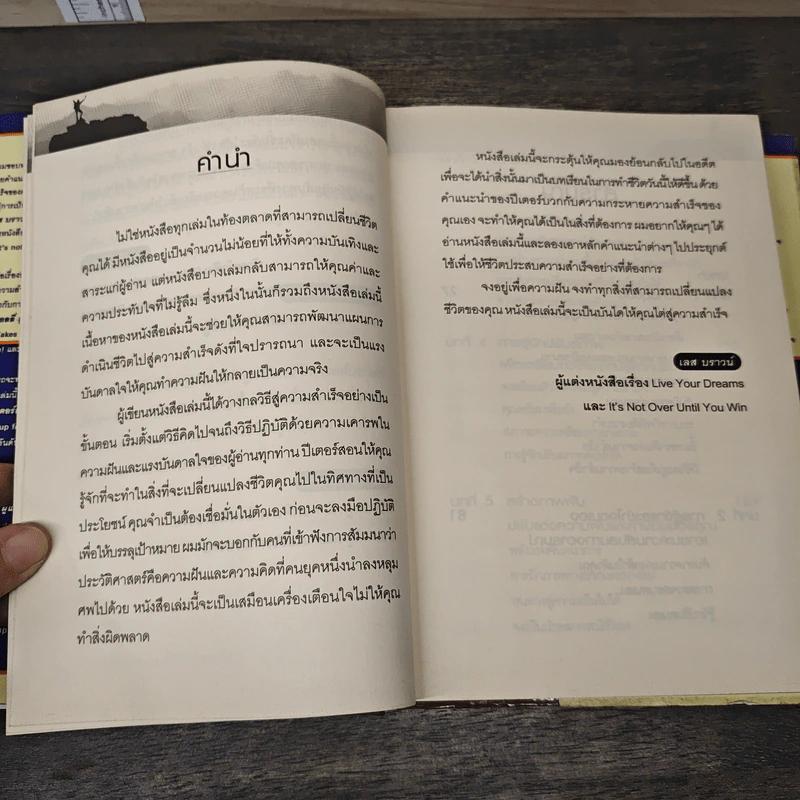 คำนำ
ไม่ใช่หนังสือทุกเล่มในท้องตลาดที่สามารถเปลี่ยนชีวิต
คุณได้ มีหนังสืออยู่เป็นจำนวนไม่น้อยที่ให้ทั้งความบันเทิงและ
สาระแก่ผู้อ่าน แต่หนังสือบางเล่มกลับสามารถให้คุณค่าและ
ความประทับใจที่ไม่รู้ลืม ซึ่งหนึ่งในนั้นก็รวมถึงหนังสือเล่มนี้
เนื้อหาของหนังสือเล่มนี้จะช่วยให้คุณสามารถพัฒนาแผนการ
ดำเนินชีวิตไปสู่ความสำเร็จดังที่ใจปรารถนา และจะเป็นแรง
บันดาลใจให้คุณทำความฝันให้กลายเป็นความจริง
ผู้เขียนหนังสือเล่มนี้ได้วางกลวิธีสู่ความสำเร็จอย่างเป็น
ขั้นตอน เริ่มตั้งแต่วิธีคิดไปจนถึงวิธีปฏิบัติด้วยความเคารพใน
ความฝันและแรงบันดาลใจของผู้อ่านทุกท่าน ปีเตอร์สอนให้คุณ
รู้จักที่จะทำในสิ่งที่จะเปลี่ยนแปลงชีวิตคุณไปในทิศทางที่เป็น
ประโยชน์ คุณจำเป็นต้องเชื่อมั่นในตัวเอง ก่อนจะลงมือปฏิบัติ
เพื่อให้บรรลุเป้าหมาย ผมมักจะบอกกับคนที่เข้าฟังการสัมมนาว่า
ประวัติศาสตร์คือความฝันและความคิดที่คนยุคหนึ่งนำลงหลุม
ศพไปด้วย หนังสือเล่มนี้จะเป็นเสมือนเครื่องเตือนใจไม่ให้คุณ
ทำสิ่งผิดพลาด
หนังสือเล่มนี้จะกระตุ้นให้คุณมองย้อนกลับไปในอดีต
เพื่อจะได้นำสิ่งนั้นมาเป็นบทเรียนในการทำชีวิตวันนี้ให้ดีขึ้น ด้วย
คำแนะนำของปีเตอร์บวกกับความกระหายความสำเร็จของ
คุณเอง จะทำให้คุณได้เป็นในสิ่งที่ต้องการ ผมอยากให้คุณๆ ได้
อ่านหนังสือเล่มนี้และลองเอาหลักคำแนะนำต่างๆ ไปประยุกต์
ใช้เพื่อให้ชีวิตประสบความสำเร็จอย่างที่ต้องการ
จงอยู่เพื่อความฝัน จงทำทุกสิ่งที่สามารถเปลี่ยนแปลง
ชีวิตของคุณ หนังสือเล่มนี้จะเป็นบันไดให้คุณไต่สู่ความสำเร็จ
เลส บราวน์
ผู้แต่งหนังสือเรื่อง Live Your Dreams
และ It's Not Over Until You Win